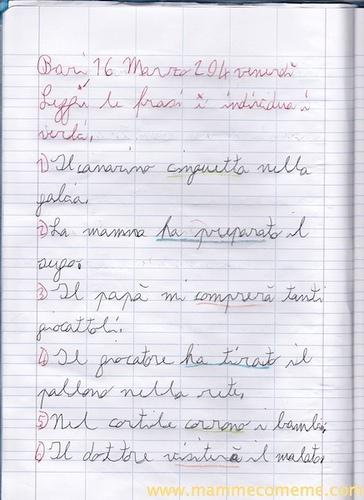 Bari 16 Marzo 204 venerdì
Leggi le frasi i individua i
verbi.
1) Il canarino cinguetta nella
gabia.
2) La mamma ha preparato il
sugo.
3) Il papà mi comprerà tanti
giocattoli.
4) Il giocatore ha tirato il
pallone nella rete.
5) Nel cortile corrono i bambi.
6) Il dottore visiterà il malato.
www.mammecomeme.com